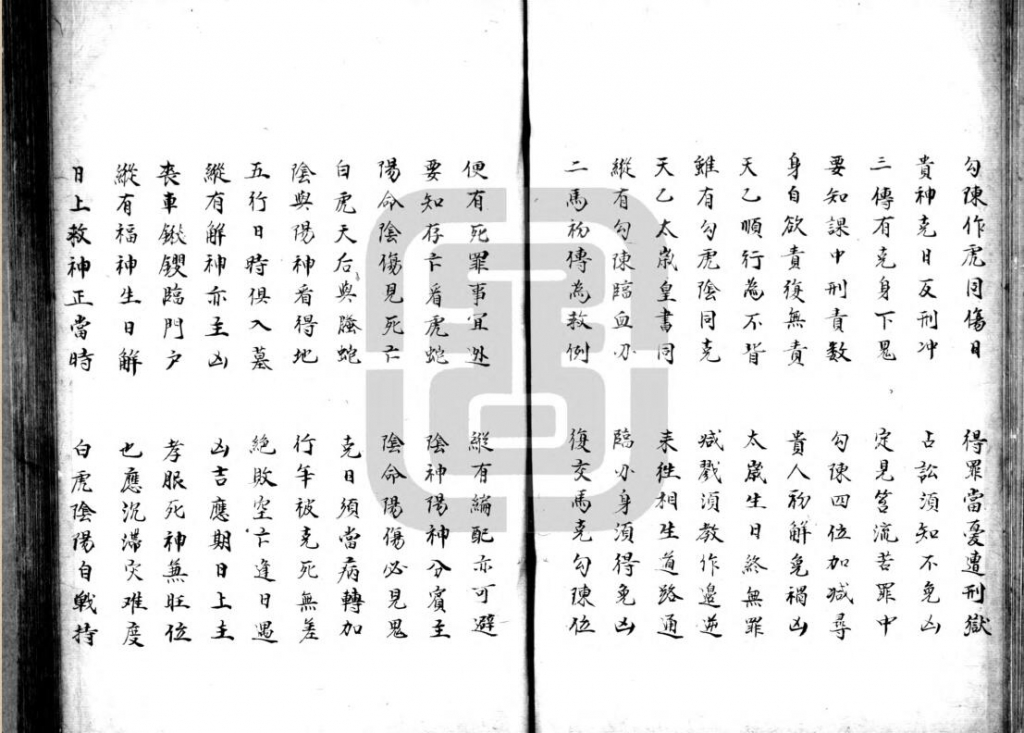 勾陳作虎同傷日 得罪當憂遭刑獄
貴神克日反刑冲 占訟須知不免凶
三傳有克身下鬼 定見笞流苦罪中
要知課中刑責数 勾陳四位加减尋
身自欲責復無責 貴人初解免禍凶
天乙順行為不背 太嵗生日終無罪
雖有勾虎陰同克 减戮須教作邉逰
天乙太嵗皇書同 来徃相生道路通
縱有勾陳臨血刃 臨刃身須得免凶
二馬初傳為救例 復交馬克勾陳位
便有死罪事宜迯 縱有編配亦可避
要知存亡看虎蛇 陰神陽神分賓主
陽命陰傷見死亡 陰命陽傷必見鬼
白虎天后與螣蛇 克日須當病轉加
陰與陽神看得地 行年被克死無差
五行日時俱入墓 絶敗空亡逢日遇
縱有解神亦主凶 凶吉應期日上主
喪車鍁钁臨門户 孝服死神無旺位
縱有福神生日解 也應沉滯灾难度
日上救神正當時 白虎陰陽自戰持